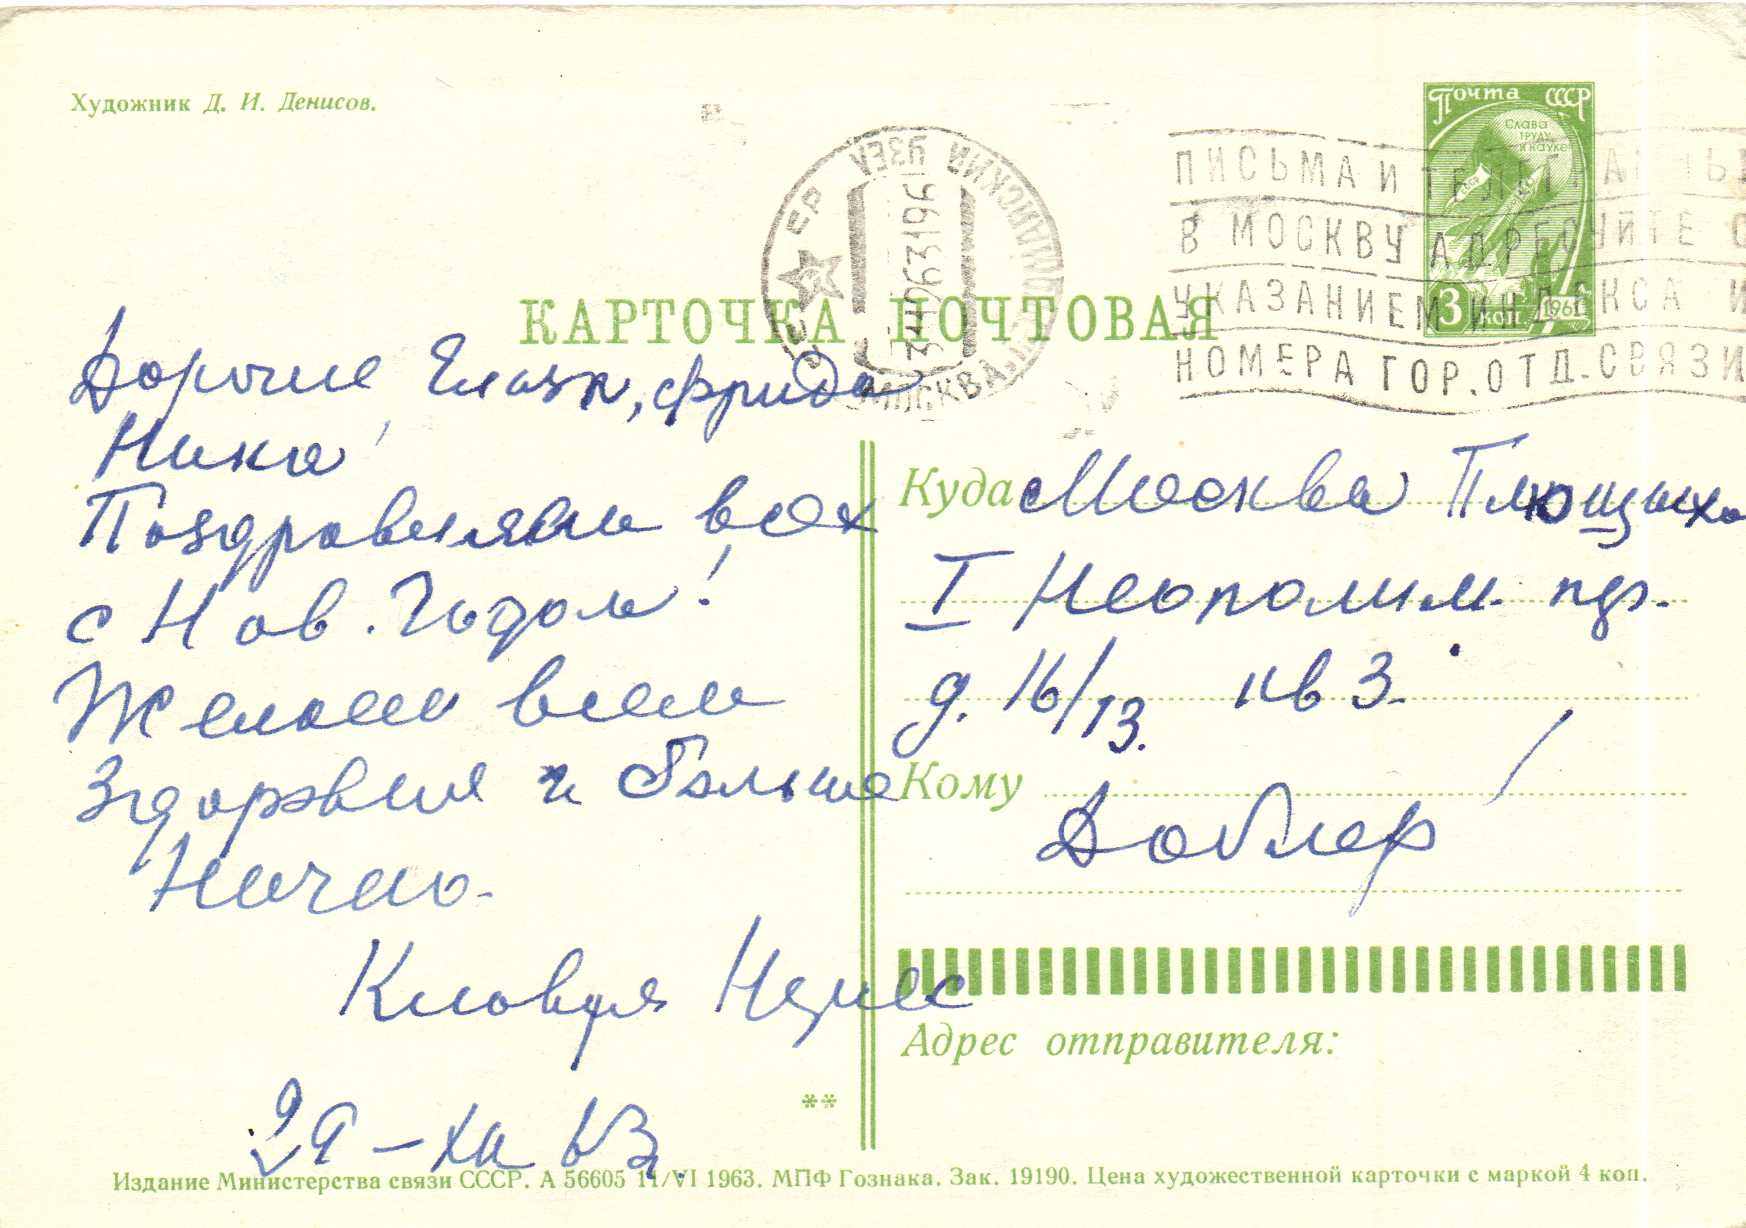 Художник Д. И. Денисов.
Почта СССР
Слава
труду
и науке
3 коп. 1961
МОСКВА
ПИСЬМА И ТЕЛЕГРАММЫ
В МОСКВУ АДРЕСУЙТЕ С
УКАЗАНИЕМ ИНДЕКСА И
НОМЕРА ГОР. ОТД. СВЯЗИ
КАРТОЧКА ПОЧТОВАЯ
Дорогие, Фрида
Ника
Поздравляем всех
с Нов. Годом!
Желаем всем
Здоровия и больше
Ничего.
Клавдя
29 - XII 63.
Куда Москва Плющиха
I Неопалим. пер.
д. 16/13. кв 3.
Кому
Доблер
Адрес отправителя:
**
Издание Министерства связи СССР. А 56605 11/VI 1963. МПФ Гознака. Зак. 19190. Цена художественной карточки с маркой 4 коп.